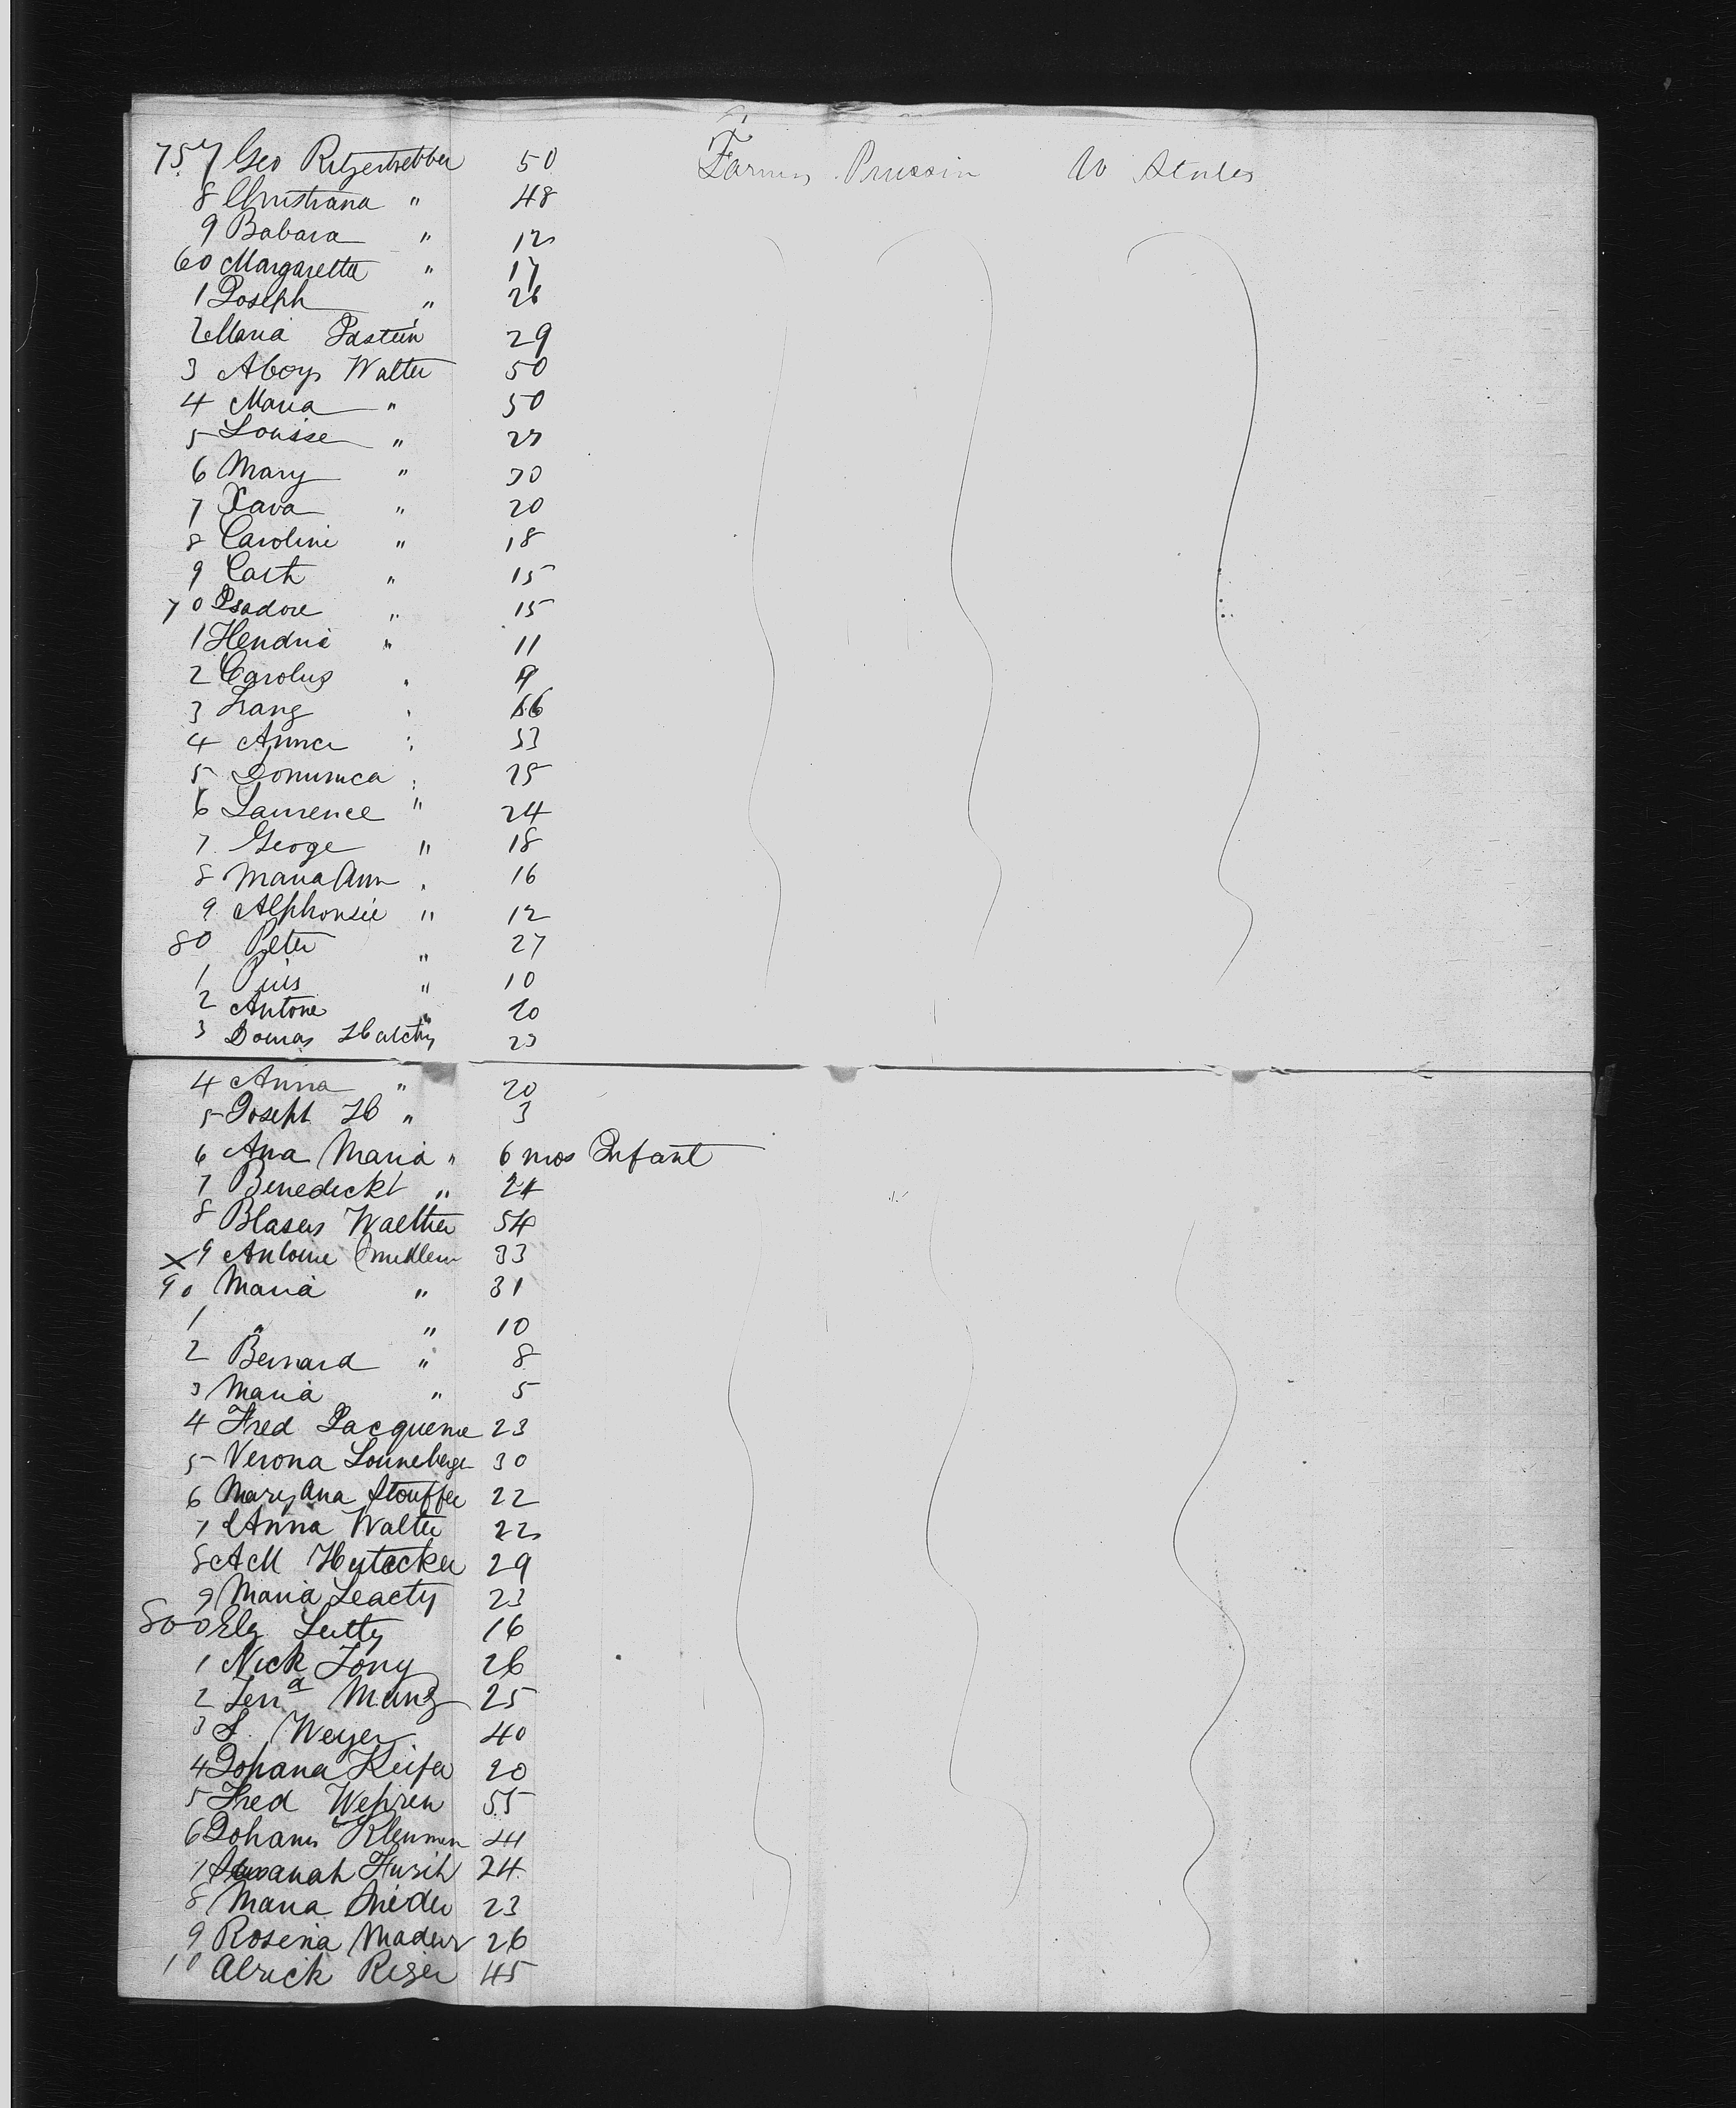 757 Geo Ritzenhebber 50 Farmers Prussia U States
8 Christiana " 48
9 Babara " 12
60 Margaretta " 17
1 Joseph " 26
2 Maria 29
3 Aloys Walter 50
4 Maria " 50
5 Louisse " 27
6 Mary " 30
7 Xava " 20
8 Caroline " 18
9 Cath " 15
70 Isadore " 15
1 Hendrie " 11
2 Carolus " 9
3 Franz "
4 Anna " 53
5 Dominica " 25
6 Laurence " 24
7 Geoge " 18
8 Maria Ann " 16
9 Alphonsie " 12
80 Peter " 27
1 Pius " 10
2 Antone " 20
3 23
4 Anna " 20
5 Joseph H " 3
6 Ana Maria " 6 mos Infant
7 Benedickt " 24
8 Blasus Walther 54
x 9 Antoine 33
90 Maria " 31
1 " " 10
2 Bernard " 8
3 Maria " 5
4 Fred Jacqueme 23
5 Verona Sonneberger 30
6 Mary Ana Stouffer 22
7 Anna Walter 22
8 A M 29
9 Maria Leacty 23
800 Elz Lutty 16
1 Nick Tony 26
2 Lena Munz 25
3 S. Weyer 40
4 Johana Keifer 20
5 Fred Wehren 55
6 Johann Klenmen
7 Susanah Hursh 24
8 Maria Snider 23
9 Rosena Mader 26
10 Alrick Riser 45